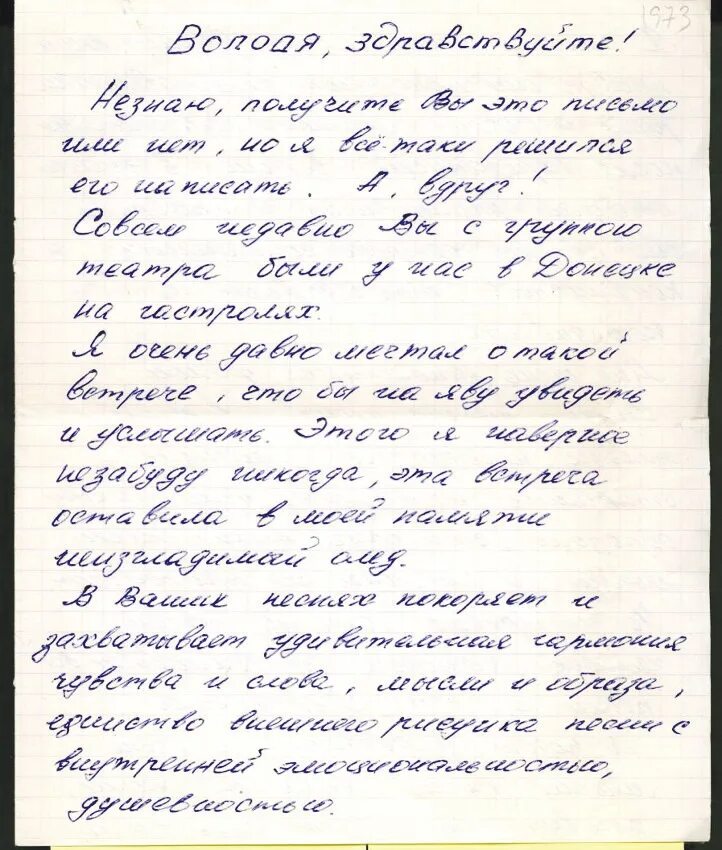 1973
Володя, здравствуйте!
Незнаю, получите Вы это письмо
или нет, но я всё-таки решился
его написать. А, вдруг!
Совсем недавно Вы с группою
театра были у нас в Донецке
на гастролях.
Я очень давно мечтал о такой
встрече, что бы на яву увидеть
и услышать. Этого я наверное
незабуду никогда, эта встреча
оставила в моей памяти
неизгладимый след.
В Ваших песнях покоряет и
захватывает удивительная гармония
чувства и слова, мысли и образа,
единство внешнего рисунка песни с
внутренней эмоциональностью,
душевностью.